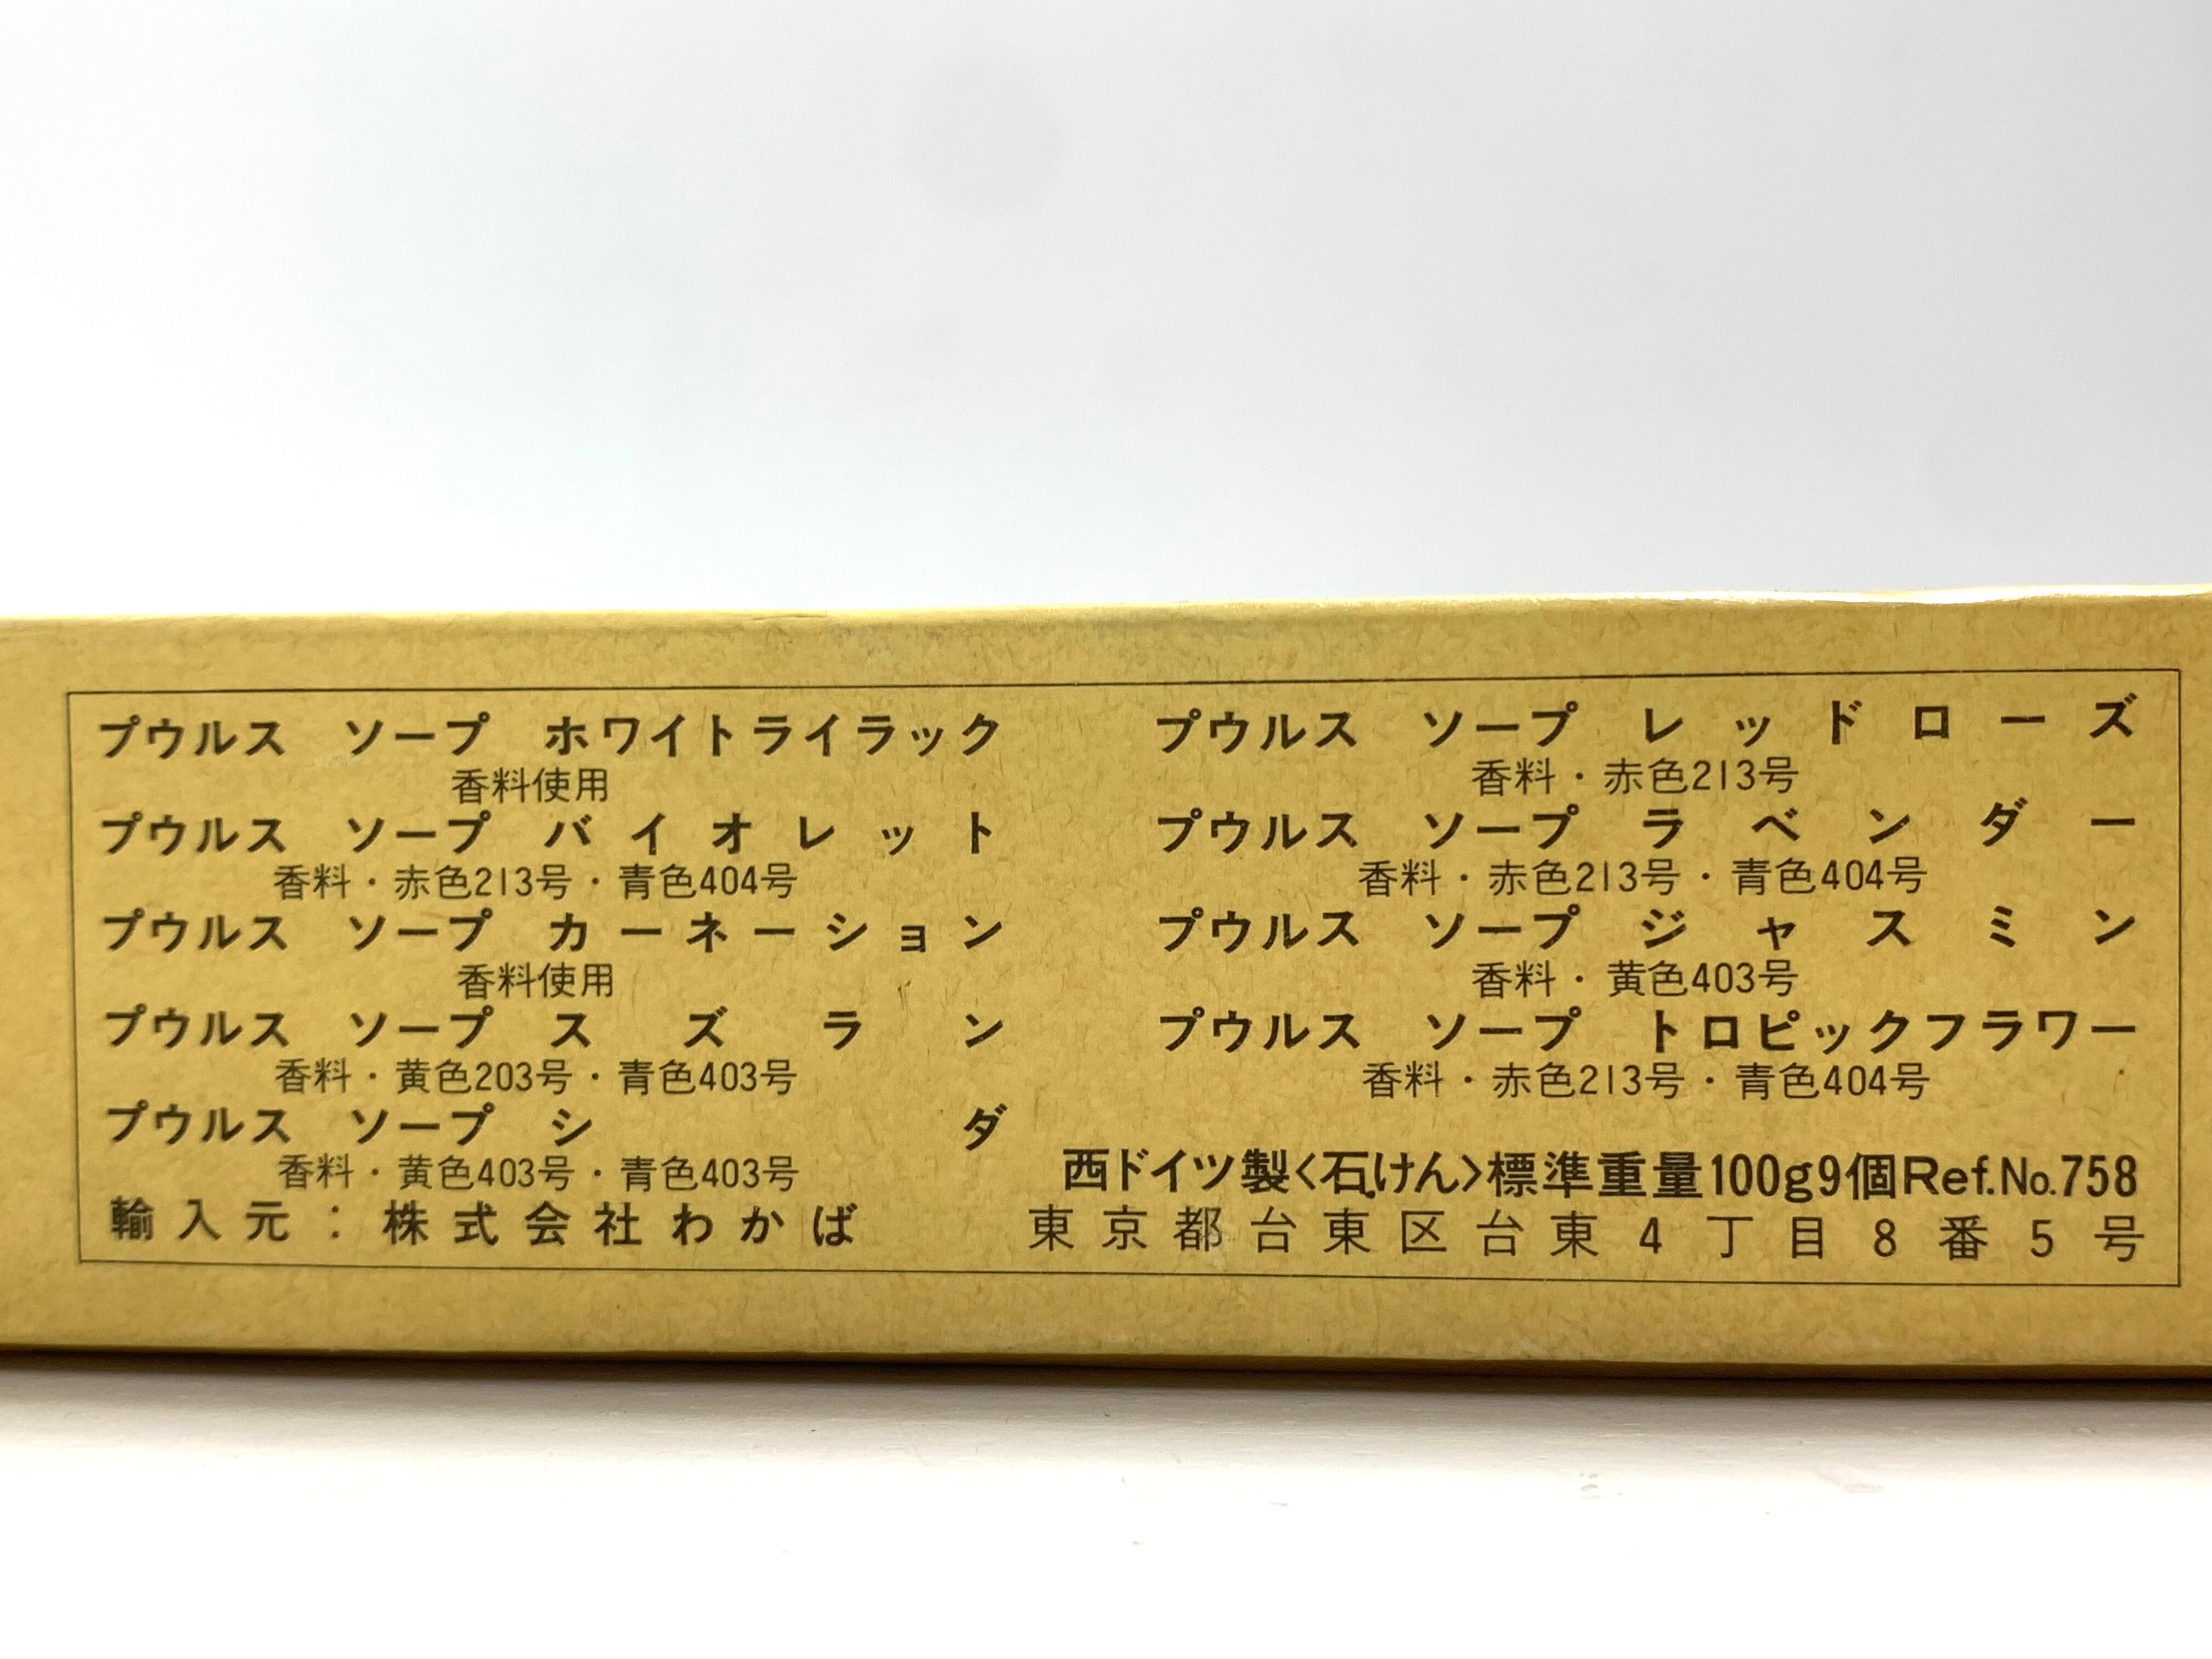 プウルス ソープ ホワイトライラック
香料使用
プウルス ソープ バイオレット
香料・赤色213号・青色404号
プウルス ソープ カーネーション
香料使用
プウルス ソープ スズラン
香料・黄色203号・青色403号
プウルス ソープ シダ
香料・黄色403号・青色403号
プウルス ソープ レッドローズ
香料・赤色213号
プウルス ソープ ラベンダー
香料・赤色213号・青色404号
プウルス ソープ ジャスミン
香料・黄色403号
プウルス ソープ トロピックフラワー
香料・赤色213号・青色404号
西ドイツ製<石けん>標準重量100g9個Ref.No.758
輸入元:株式会社わかば 東京都台東区台東4丁目8番5号